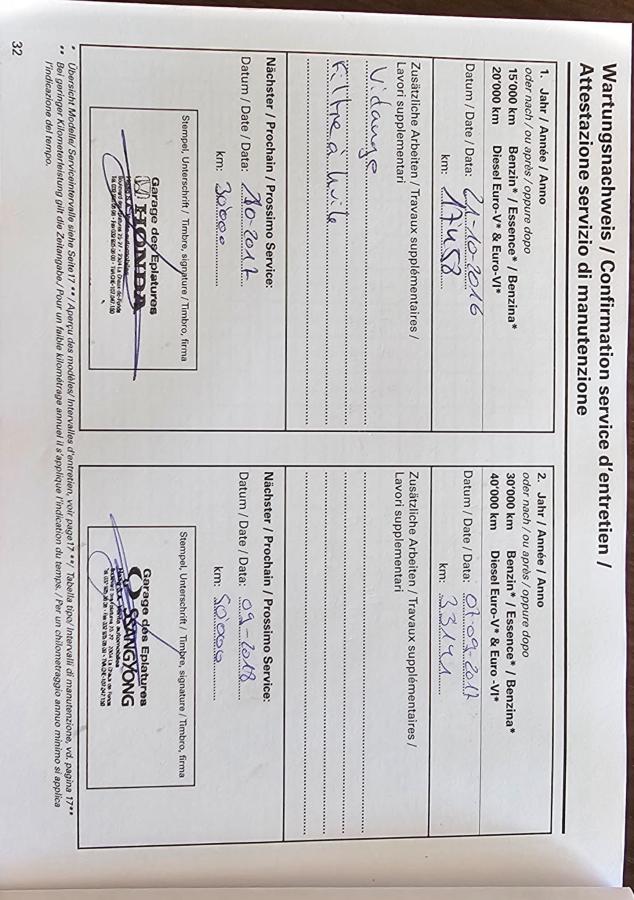 Wartungsnachweis / Confirmation service d'entretien /
Attestazione servizio di manutenzione
1. Jahr / Année / Anno
oder nach / ou après / oppure dopo
15'000 km Benzin* / Essence* / Benzina*
20'000 km Diesel Euro-V* & Euro-VI*
Datum / Date / Data: 21-10-2016
km: 17458
Zusätzliche Arbeiten / Travaux supplémentaires /
Lavori supplementari
Vidange
Filtre à huile
Nächster / Prochain / Prossimo Service:
Datum / Date / Data: 10-2017
km: 30'000
Stempel, Unterschrift / Timbre, signature / Timbro, firma
Garage des Eplatures
HONDA
2. Jahr / Année / Anno
oder nach / ou après / oppure dopo
30'000 km Benzin* / Essence* / Benzina*
40'000 km Diesel Euro-V* & Euro -VI*
Datum / Date / Data: 07-09-2017
km: 33141
Zusätzliche Arbeiten / Travaux supplémentaires /
Lavori supplementari
Nächster / Prochain / Prossimo Service:
Datum / Date / Data: 09-2018
km: 50'000
Stempel, Unterschrift / Timbre, signature / Timbro, firma
Garage des Eplatures
SSANGYONG
* Übersicht Modelle/ Serviceintervalle siehe Seite17 **/ Aperçu des modèles/ Intervalles d'entretien, voir page17 **/ Tabella tipo/ Intervalli di manutenzione, vd. pagina 17**
** Bei geringer Kilometerleistung gilt die Zeitangabe./ Pour un faible kilométrage annuel il s'applique l'indication du temps. / Per un chilometraggio annuo minimo si applica
l'indicazione del tempo.
32